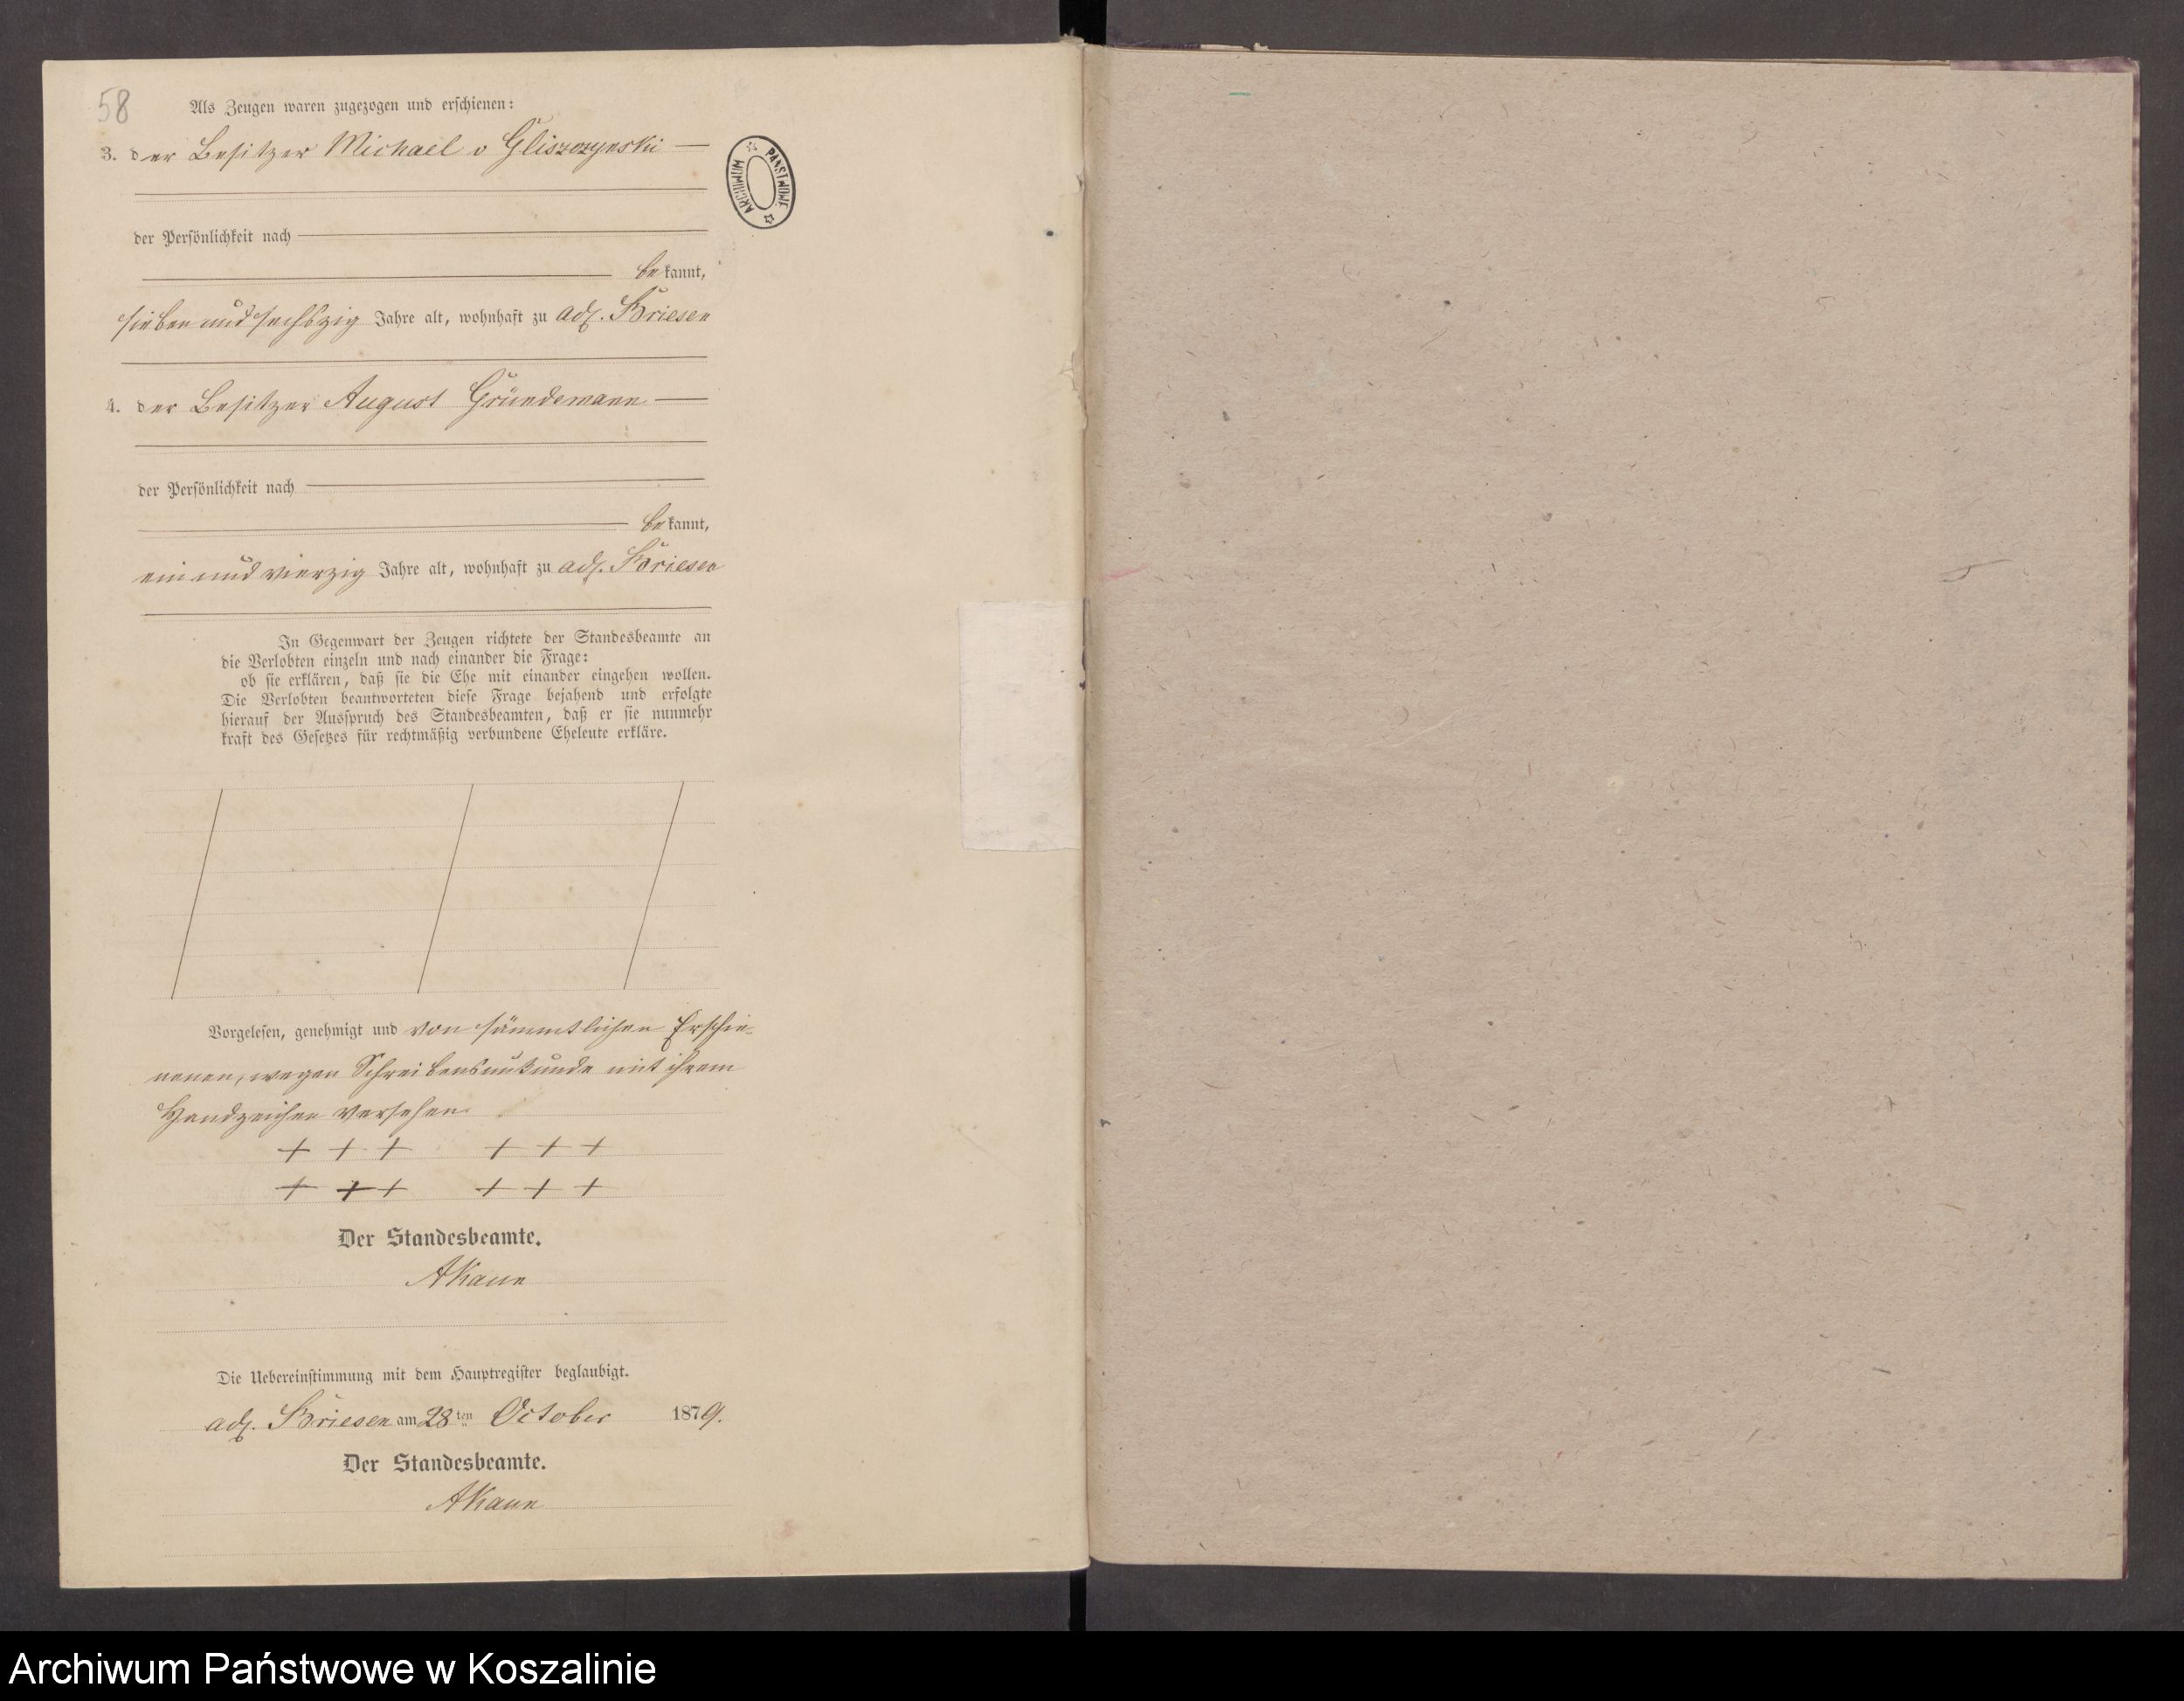 58
Als Zeugen waren zugezogen und erschienen:
3. der Besitzer Michael v Gliszczynski
der Persönlichkeit nach
bekannt,
sieben und sechszig Jahre alt, wohnhaft zu adl. Briesen
4. der Besitzer August Gründemann
der Persönlichkeit nach
bekannt,
ein und vierzig Jahre alt, wohnhaft zu adl. Briesen
In Gegenwart der Zeugen richtete der Standesbeamte an
die Verlobten einzeln und nach einander die Frage:
ob sie erklären, daß sie die Ehe mit einander eingehen wollen.
Die Verlobten beantworteten diese Frage bejahend und erfolgte
hierauf der Ausspruch des Standesbeamten, daß er sie nunmehr
kraft des Gesetzes für rechtmäßig verbundene Eheleute erkläre.
Vorgelesen, genehmigt und von sämmtlichen Erschie-
nenen, wegen Schreibensunkunde mit ihrem
Handzeichen versehen
+ + + + + +
+ + + + + +
Der Standesbeamte.
Die Uebereinstimmung mit dem Hauptregister beglaubigt.
adl. Briesen am 28ten October 1879.
Der Standesbeamte.
ARCHIWUM PAŃSTWOWE
Archiwum Państwowe w Koszalinie